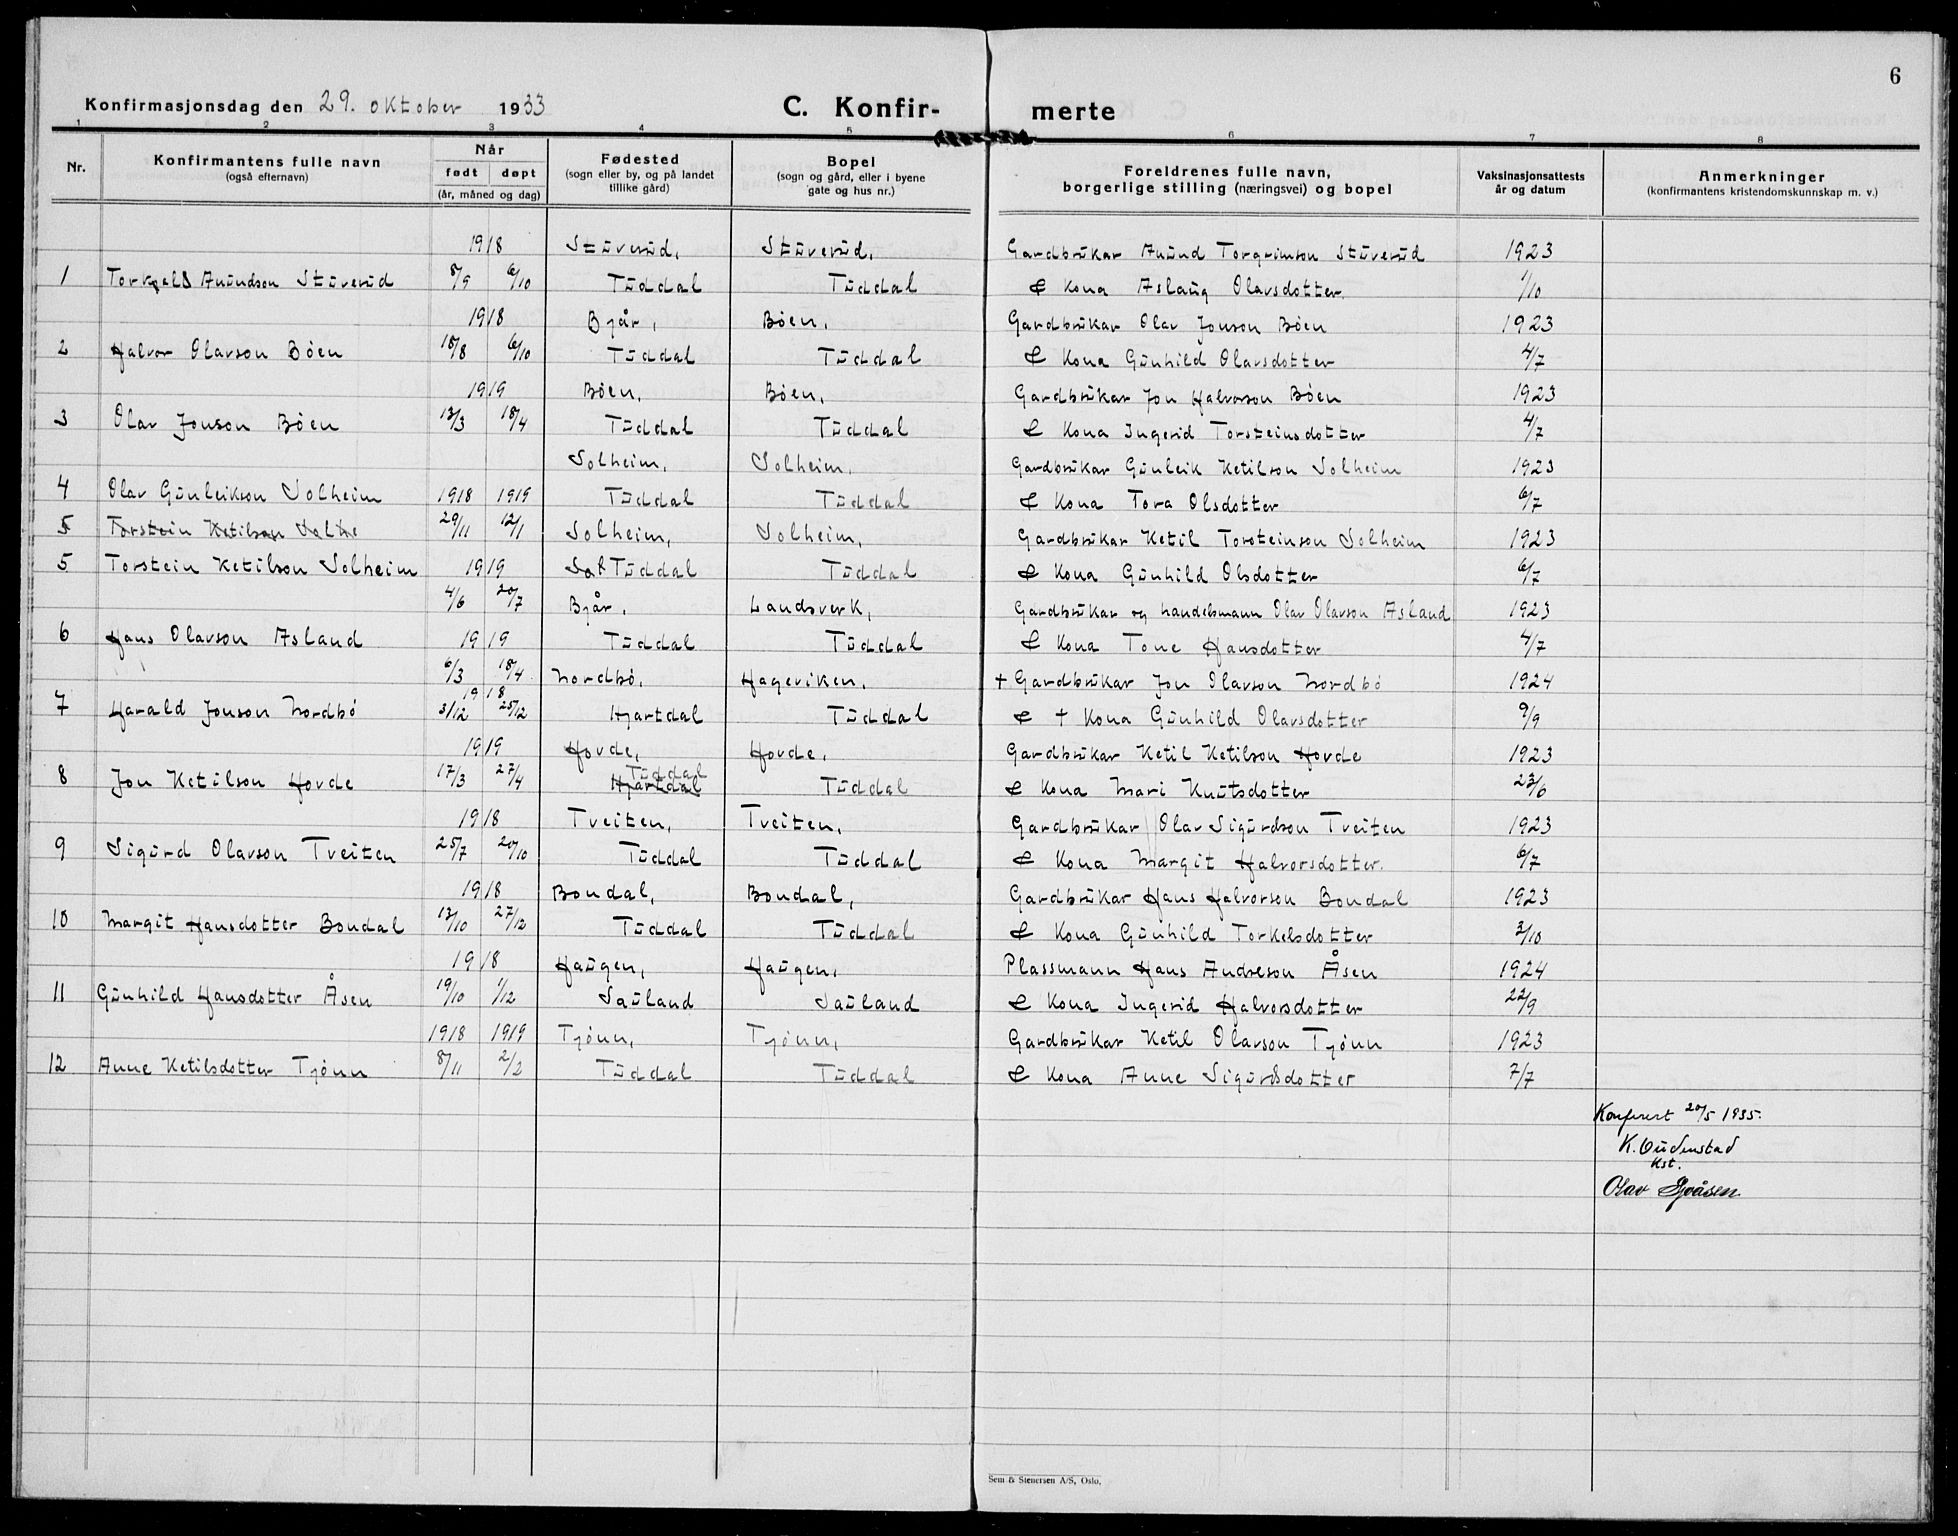 6
Konfirmasjonsdag den 29. oktober 1933 C. Konfir- merte
1 2 3 4 5 6 7 8
Nr. Konfirmantens fulle navn Når Fødested Bopel Foreldrenes fulle navn, Vaksinasjonsattests Anmerkninger
(også efternavn) født døpt (sogn eller by, og på landet (sogn og gård, eller i byene borgerlige stilling (næringsvei) og bopel år og datum (konfirmantens kristendomskunnskap m. v.)
(år, måned og dag) tillike gård) gate og hus nr.)
1918 Stuverud, Stuverud, Gardbrukar Anund Torgrimson Stuverud 1923
1 Torkjell Anundson Stuverud 8/9 6/10 Tuddal Tuddal & Kona Aslaug Olavsdotter. 1/10
1918 Bjår, Bøen, Gardbrukar Olav Jonson Bøen 1923
2 Halvor Olavson Bøen 18/8 6/10 Tuddal Tuddal & Kona Gunhild Olavsdotter 4/7
1919 Bøen, Bøen, Gardbrukar Jon Halvorson Bøen 1923
3 Olav Jonson Bøen 13/3 18/4 Tuddal Tuddal & Kona Ingerid Torsteinsdotter 4/7
Solheim, Solheim, Gardbrukar Gunleik Ketilson Solheim 1923
4 Olav Gunleikson Solheim 1918 1919 Tuddal Tuddal & Kona Tora Olsdotter 6/7
5 Torstein Ketilson Solhe 29/11 12/1 Solheim, Solheim, Gardbrukar Ketil Torsteinson Solheim 1923
5 Torstein Ketilson Solheim 1919 Sol Tuddal Tuddal & Kona Gunhild Olsdotter 6/7
4/6 20/7 Bjår, Landsverk, Gardbrukar og handelsmann Olav Olavson Asland 1923
6 Hans Olavson Asland 1919 Tuddal Tuddal & Kona Tone Hansdotter 4/7
6/3 18/4 Nordbø, Hageviken, + Gardbrukar Jon Olavson Nordbø 1924
1918
7 Harald Jonson Nordbø 3/12 25/12 Hjartdal Tuddal & + Kona Gunhild Olavsdotter 9/9
1919 Hovde, Hovde, Gardbrukar Ketil Ketilson Hovde 1923
Tuddal
8 Jon Ketilson Hovde 17/3 27/4 Hjartdal Tuddal & Kona Mari Knutsdotter 23/6
1918 Tveiten, Tveiten, Gardbrukar Olav Sigurdson Tveiten 1923
9 Sigurd Olavson Tveiten 25/7 20/10 Tuddal Tuddal & Kona Margit Halvorsdotter. 6/7
1918 Bondal, Bondal, Gardbrukar Hans Halvorson Bondal 1923
10 Margit Hansdotter Bondal 13/10 27/12 Tuddal Tuddal & Kona Gunhild Torkelsdotter 3/10
1918 Haugen, Haugen, Plassmann Hans Andreson Åsen 1924
11 Gunhild Hansdotter Åsen 19/10 1/12 Sauland Sauland & Kona Ingerid Halvorsdotter 22/9
1918 1919 Tjønn, Tjønn, Gardbrukar Ketil Olavson Tjønn 1923
12 Anne Ketilsdotter Tjønn 8/11 2/2 Tuddal Tuddal & Kona Anne Sigurdsdotter 7/7
Konferert 20/5 1935.
K.
Kst.
Olav
Sem & Stenersen A/S, Oslo.